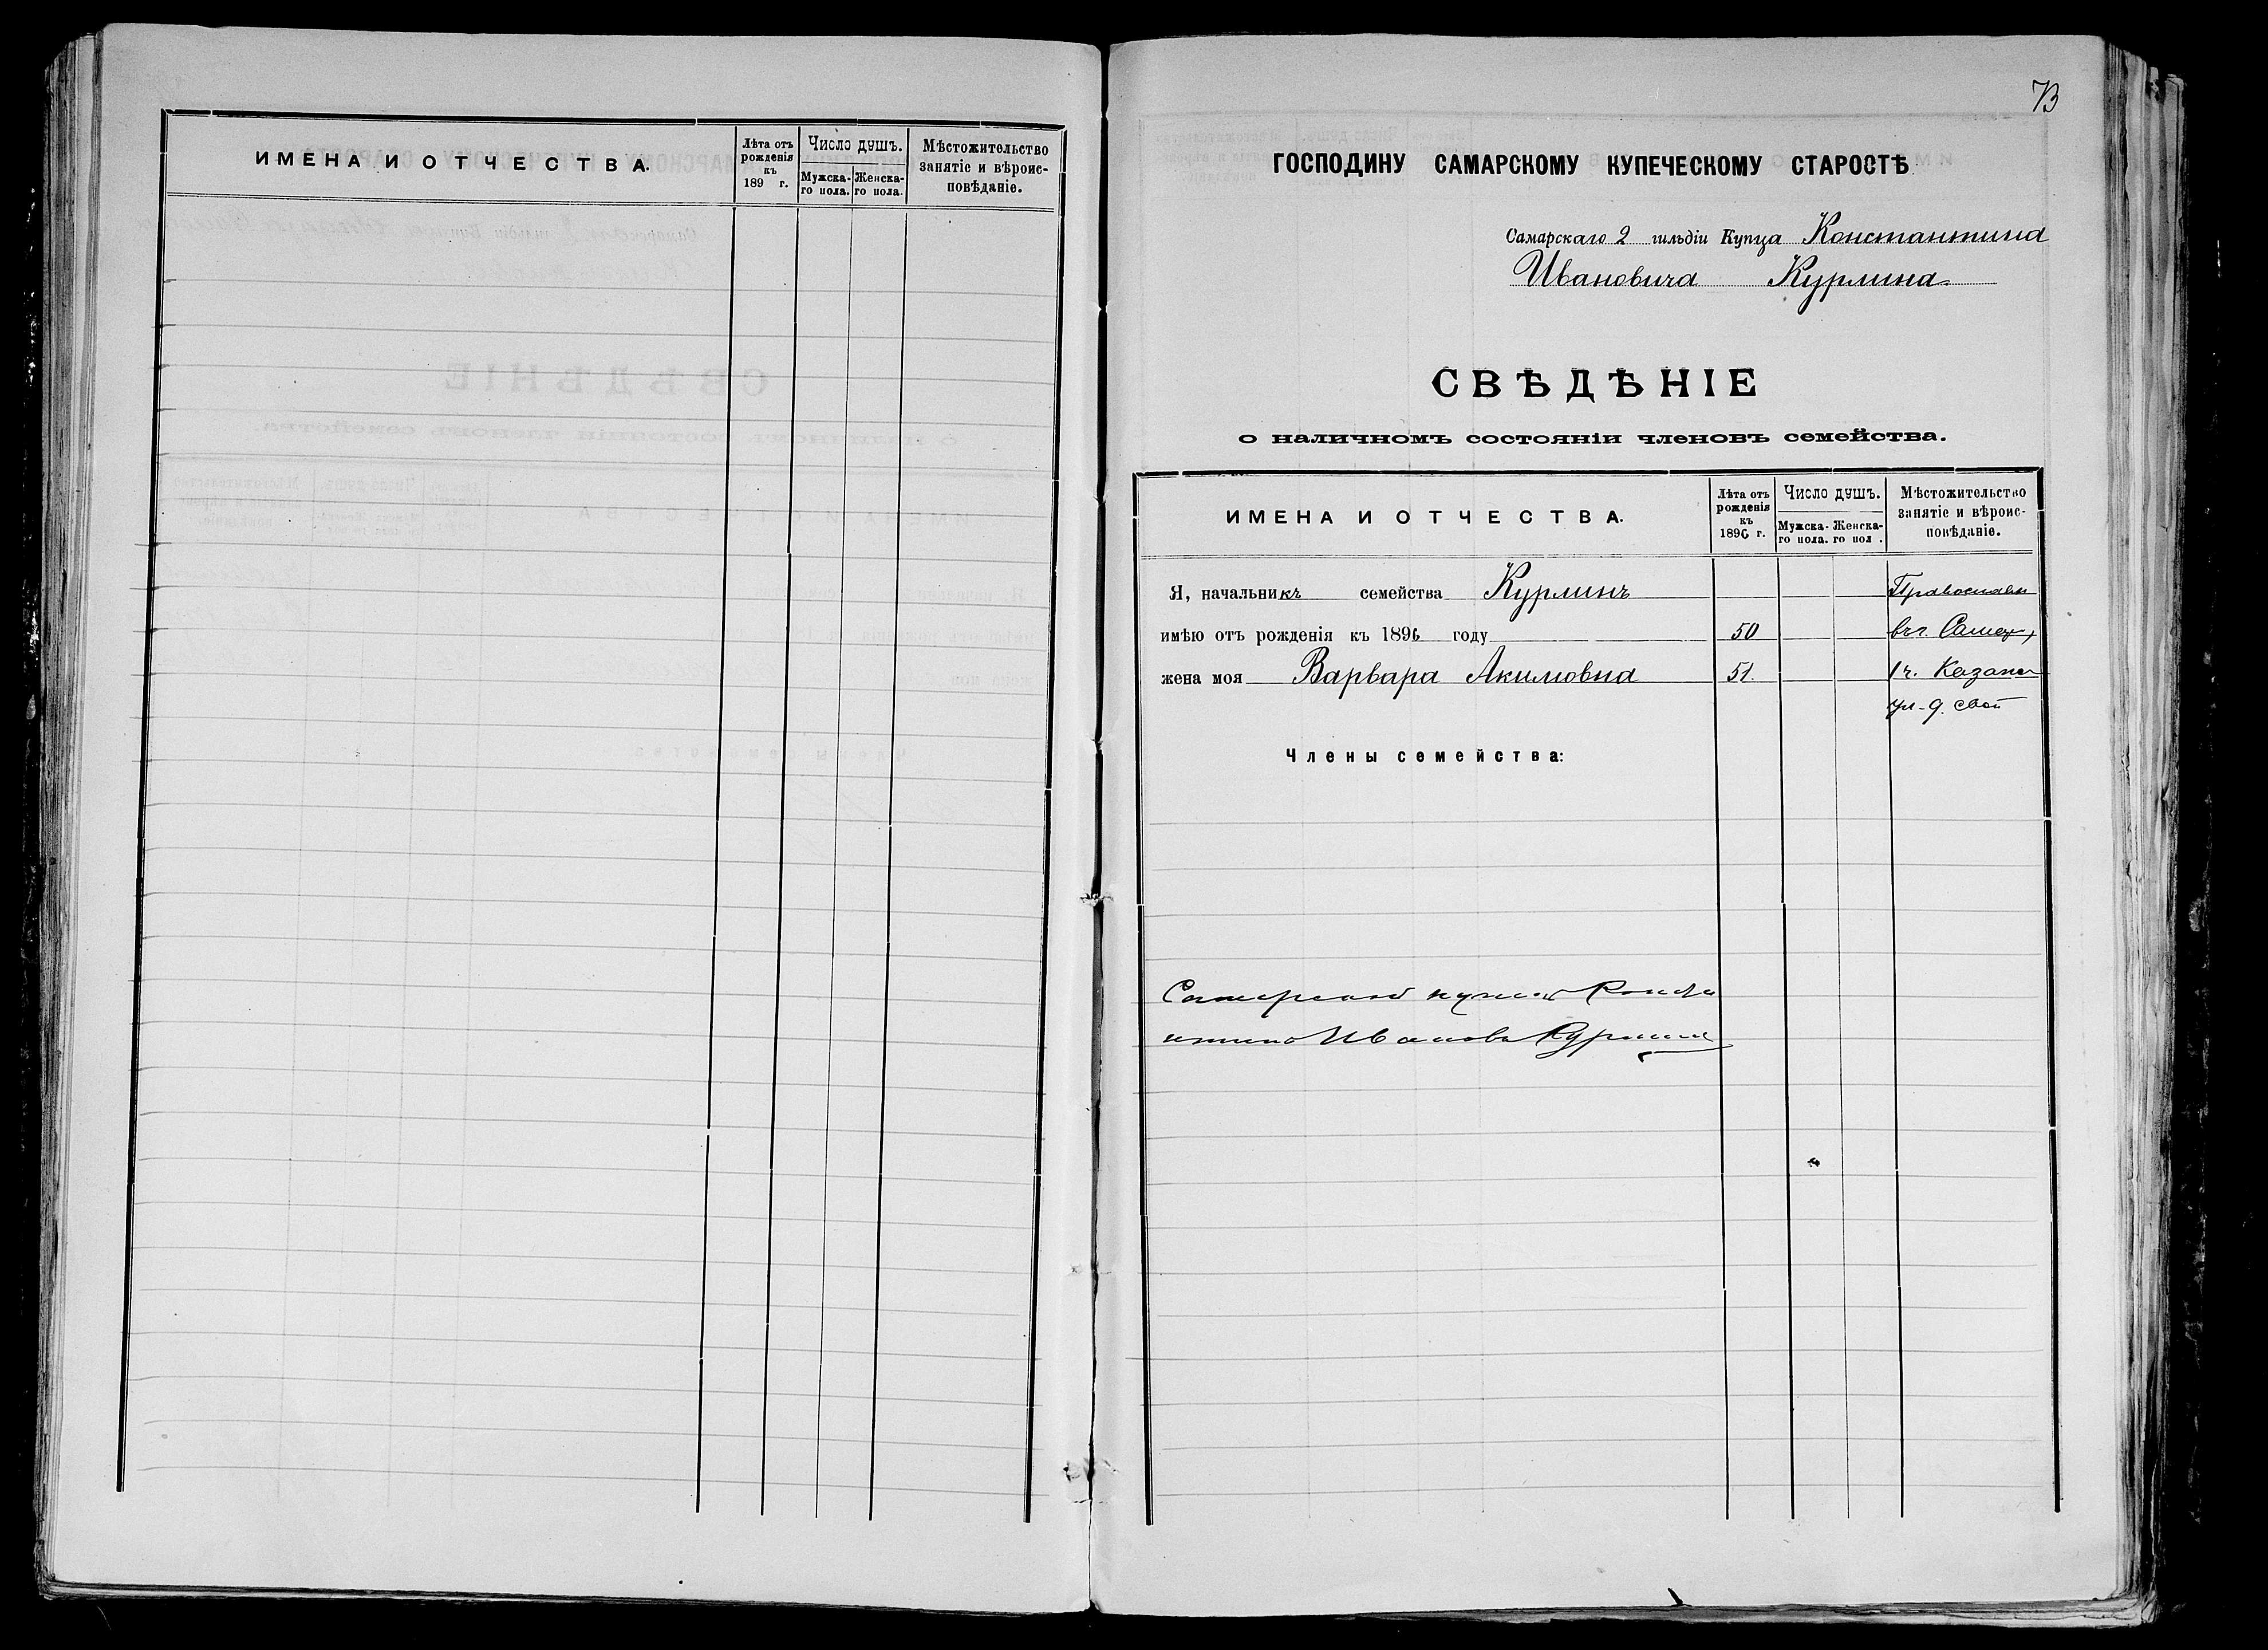 ИМЕНА И ОТЧЕСТВА.
Лѣта отъ рожденія къ 189 г.
Число душъ.
Мужска-го пола.
Женска-го пола.
Мѣстожительство занятіе и вѣроис-повѣданіе.
73
ГОСПОДИНУ САМАРСКОМУ КУПЕЧЕСКОМУ СТАРОСТѢ
Самарскаго 2 гильдіи Купца Константина
Ивановича Курлина
СВѢДѢНІЕ
о наличномъ состояніи членовъ семейства.
ИМЕНА И ОТЧЕСТВА.
Лѣта отъ рожденія къ 1896 г.
Число душъ.
Мужска-го пола.
Женска-го пол .
Мѣстожительство занятіе и вѣроис-повѣданіе.
Я, начальникъ семейства Курлинъ Православн
имѣю отъ рожденія къ 1896 году 50 въ г. Самар
жена моя Варвара Акимовна 51. 1 ч. Казанс
ул - д. свой
Члены семейства:
Самарской купецъ Конста
нтинъ Ивановъ Курлинъ